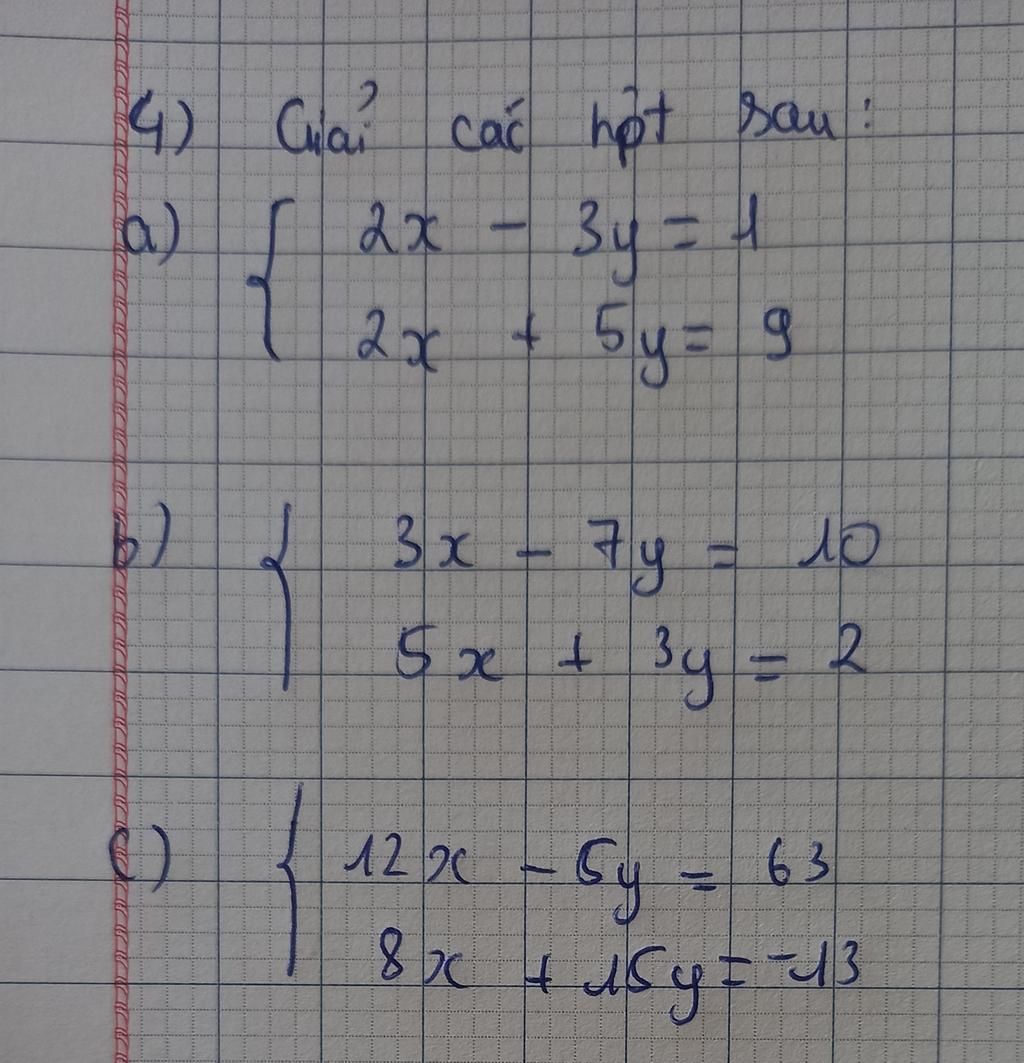 4) Giải các hpt sau:
a) { 2x - 3y = 1
2x + 5y = 9
b) { 3x - 7y = 10
5x + 3y = 2
c) { 12x - 5y = 63
8x + 15y = -13